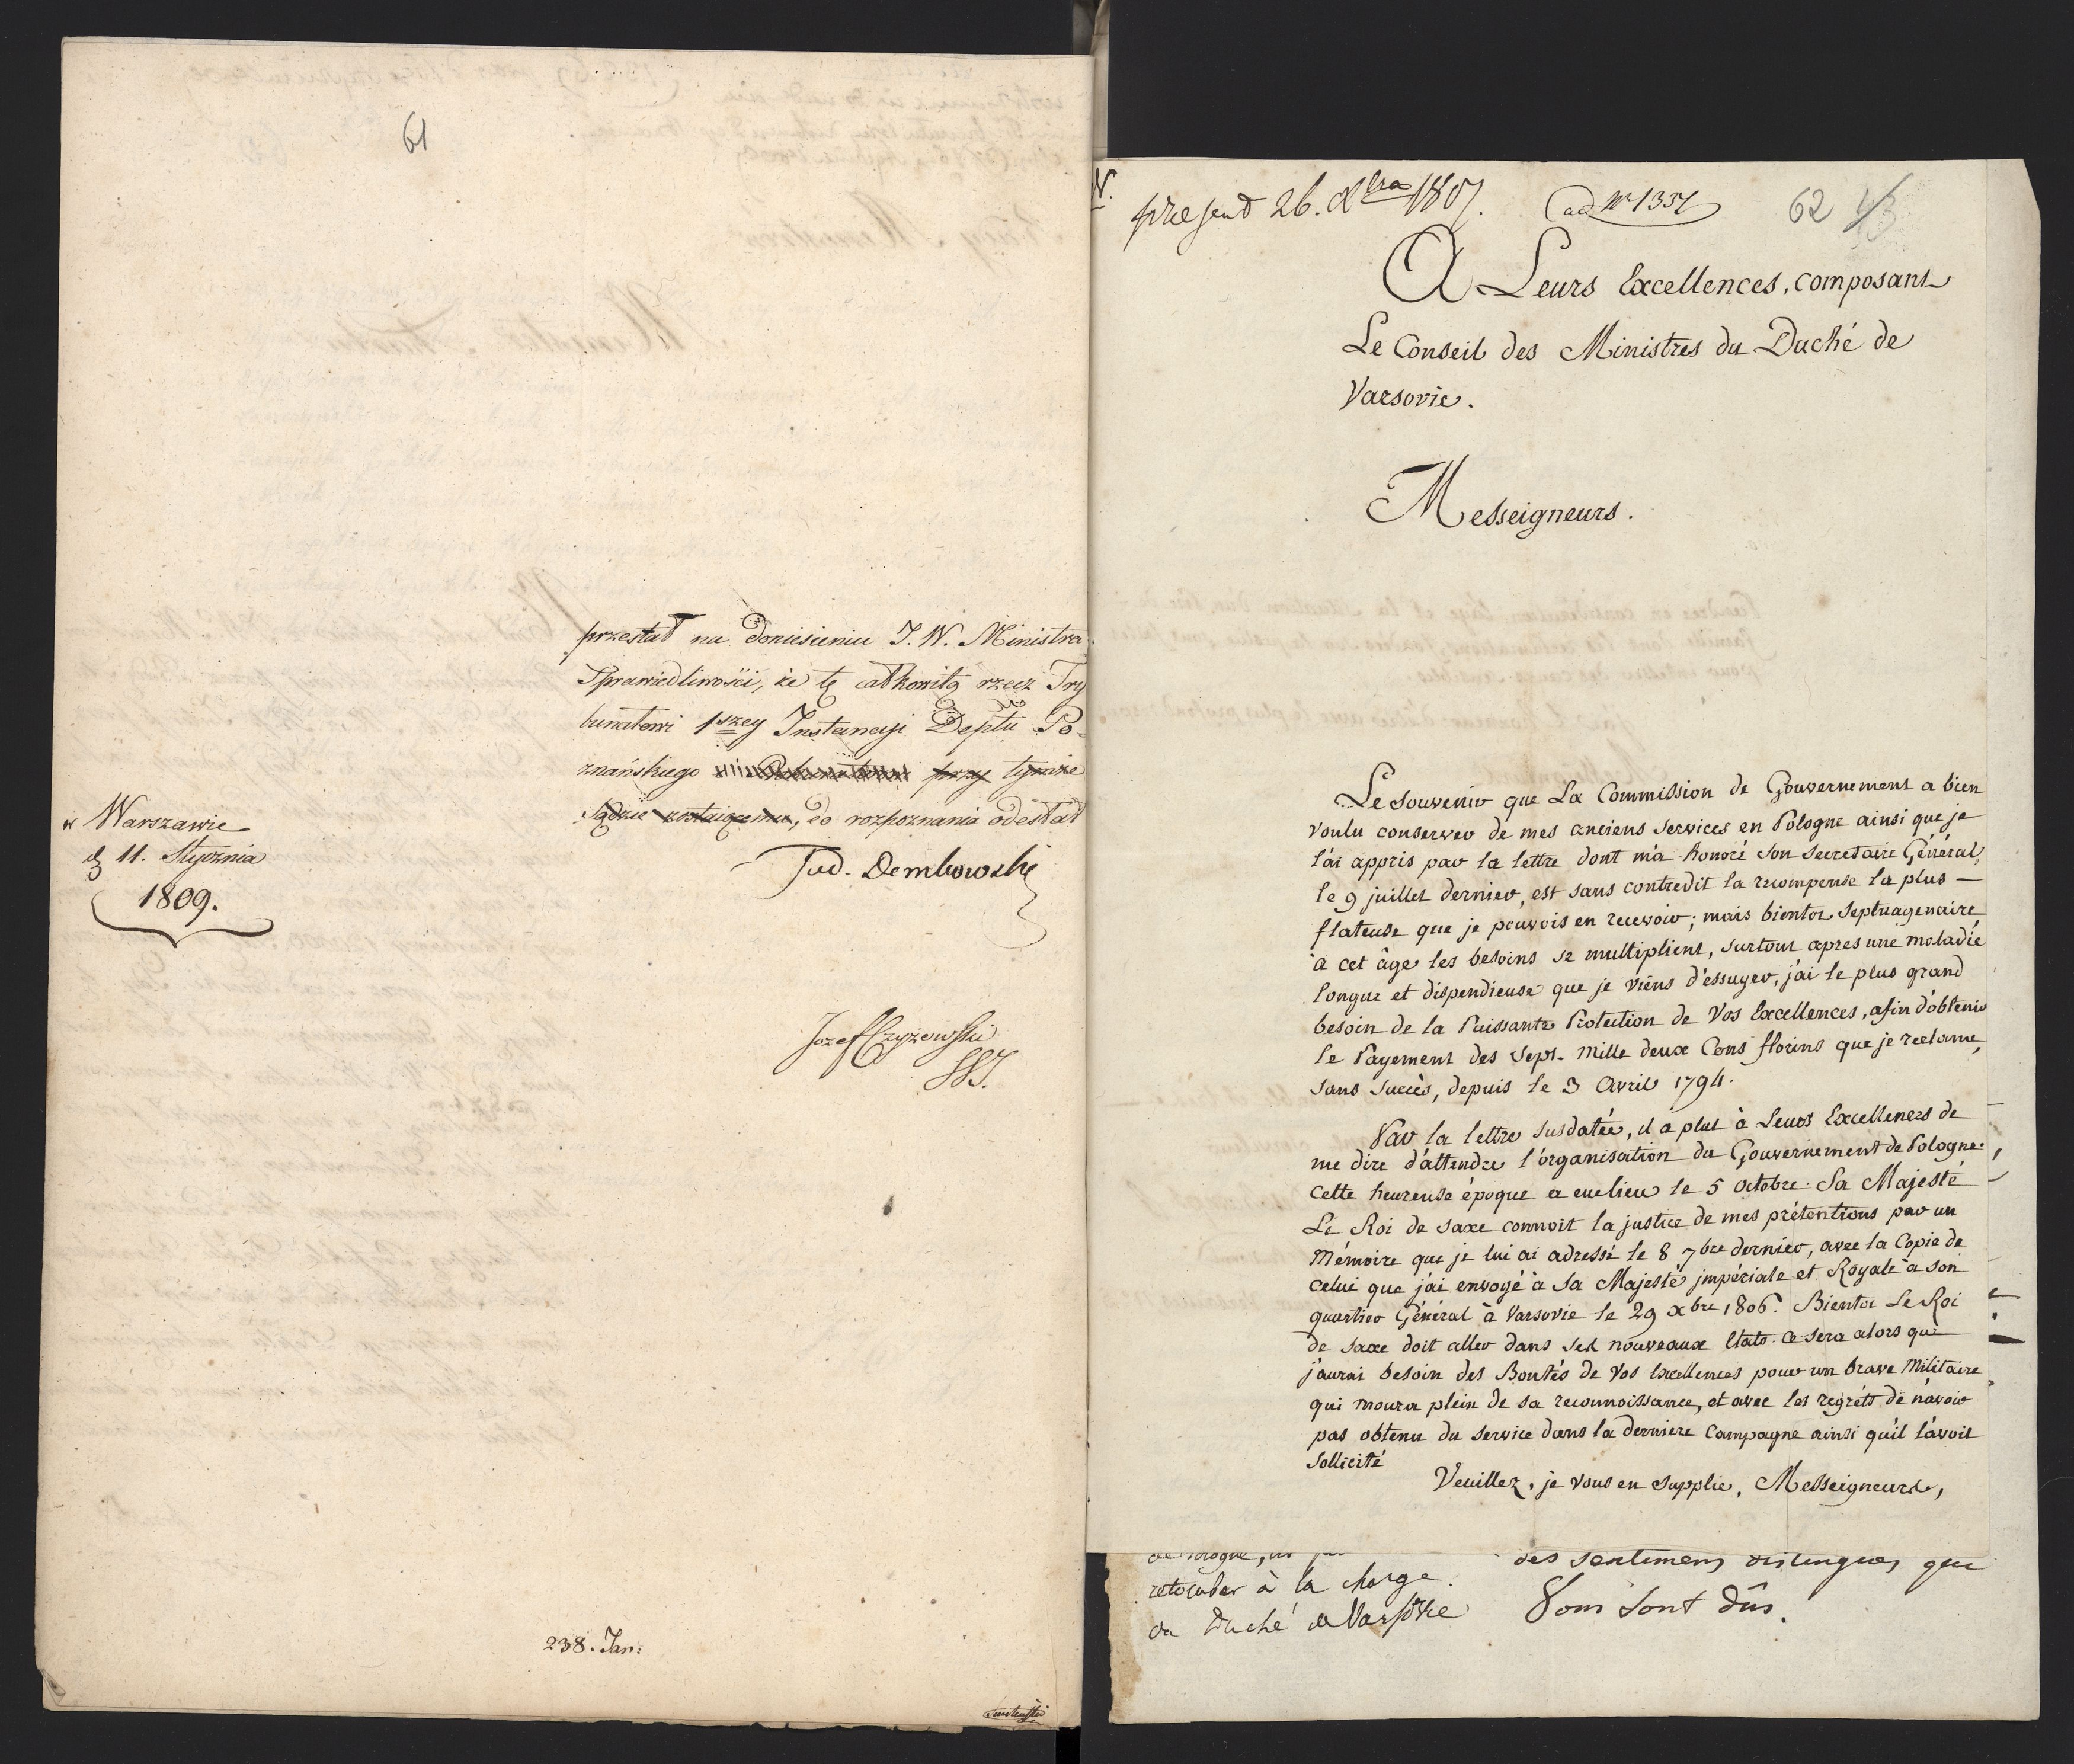 61
przestał na doniesieniu J. W. Ministra
Sprawiedliwości, że tę całkowitą rzecz Try
bunałowi 1szey Instancyi Deptu Po=
znańskiego przy tymże
Sądzie zostaiącemu, do rozpoznania odesłał
w Warszawie
d. 11. Stycznia
1809.
Tad. Dembowski
Jozef Czyżewski
238. Jan:
N.
present 26. Xbra 1807. ad No 1337 62
A Leurs Excellences, composant
Le Conseil des Ministres du Duché de
Varsovie.
Messeigneurs.
Le Souvenir que La Commission de Gouvernement a bien
voulu conserver de mes anciens Services en Pologne ainsi que je
l'ai appris par la lettre dont m'a honoré son Secretaire Général,
le 9 juillet dernier, est sans contredit la recompense la plus —
flateuse que je pouvois en recevoir; mais bientot Septuagenaire,
à cet âge les besoins se multiplient, surtout apres une maladie
longue et dispendieuse que je viens d'essuyer, j'ai le plus grand
besoin de la Puissante Protection de Vos Excellences, afin d'obtenir
le Payement des Sept. mille deux Cens florins que je reclame,
sans succès, depuis le 3 Avril 1794.
Par la lettre susdatée, il a plut à Leurs Excellences de
me dire d'attendre l'organisation du Gouvernement de Pologne.
Cette heureuse époque a eue lieu le 5 octobre. Sa Majesté
Le Roi de saxe connoit la justice de mes prétentions par un
Mémoire que je lui ai adressé le 8 7bre dernier, avec la Copie de
celui que j'ai envoyé à Sa Majesté jmpériale et Royale à son
quartier Général à Varsovie le 29 Xbre 1806. Bientot Le Roi
de saxe doit aller dans ses nouveaux Etats. Ce sera alors que
j'aurai besoin des Bontés de Vos Excellences pour un brave Militaire
qui moura plein de sa reconnoissance, et avec les regrets de n'avoir
pas obtenu du service dans la derniere Campagne ainsi qu'il l'avoit
Sollicité
Veuillez, je vous en supplie, Messeigneurs,
de Pologne,
retomber à la charge
du Duché de Varsovie
des sentimens distingués que
Vous sont dûs.